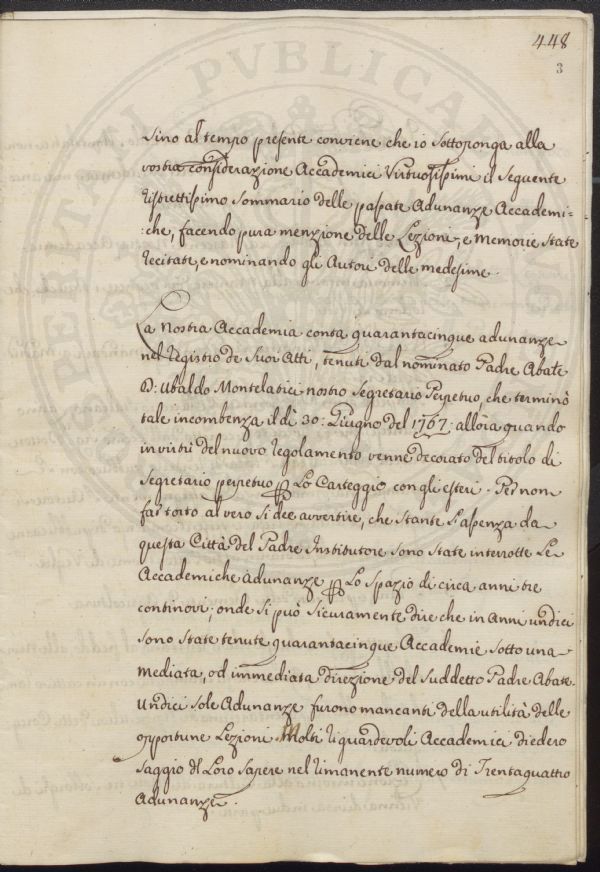 448
3
sino al tempo presente conviene che io sottoponga alla
vostra considerazione Accademici Virtuosissimi il seguente
ristrettissimo sommario delle passate Adunanze Accademi=
=che, facendo pura menzione delle Lezioni, e Memorie state
recitate, e nominando gli Autori delle medesime.
La Nostra Accademia conta quarantacinque adunanze
nel registro de suoi Atti, tenuti dal nominato Padre Abate
D: Ubaldo Montelatici nostro Segretario Perpetuo, che terminò
tale incombenza il dì 30: Giugno del 1767: allora quando
in virtù del nuovo regolamento venne decorato del titolo di
Segretario perpetuo per Lo Carteggio con gli esteri. Per non
far torto al vero si dee avvertire, che stante l'assenza da
questa Città del Padre Institutore sono state interrotte Le
Accademiche adunanze per Lo spazio di circa anni tre
continovi; onde si può sicuramente dire che in Anni undici
sono state tenute quarantacinque Accademie sotto una
mediata, od immediata direzione del suddetto Padre Abate.
Undici sole Adunanze furono mancanti della utilità delle
opportune Lezioni. Molti riguardevoli Accademici diedero
saggio del Loro sapere nel rimanente numero di Trentaquattro
Adunanze.
PVBLICAE